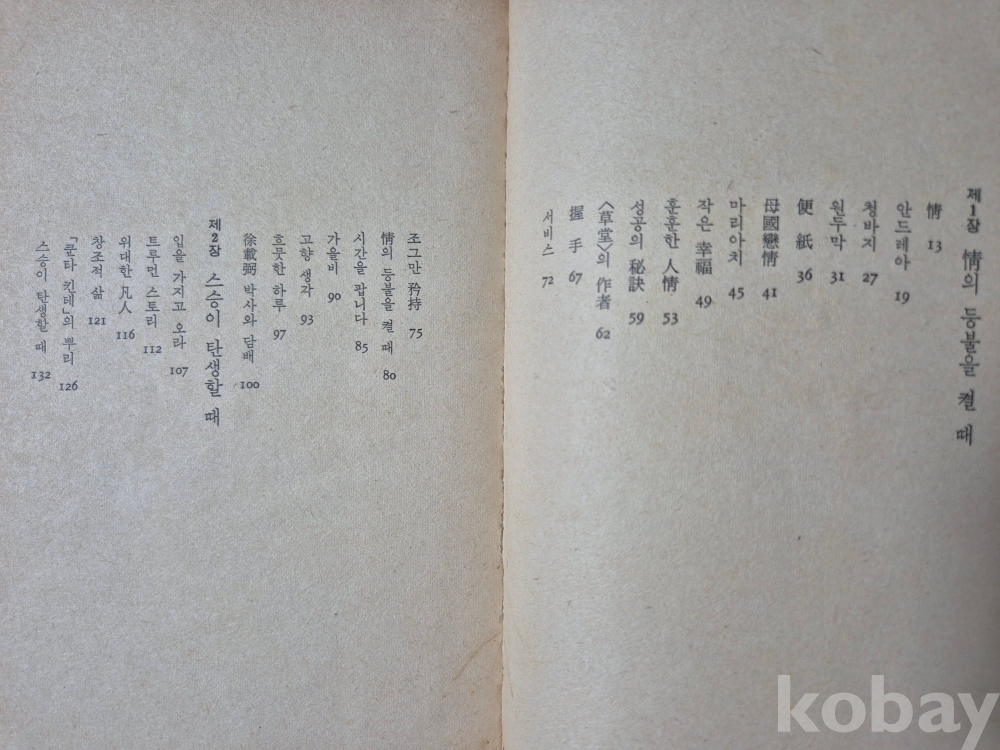 제1장 情의 등불을 켤 때
情 13
안드레아 19
청바지 27
원두막 31
便紙 36
母國戀情 41
마리아치 45
작은 幸福 49
훈훈한 人情 53
성공의 秘訣 59
〈草堂〉의 作者 62
握手 67
서비스 72
조그만 矜持 75
情의 등불을 켤 때 80
시간을 팝니다 85
가을비 90
고향 생각 93
흐뭇한 하루 97
徐載弼 박사와 담배 100
제2장 스승이 탄생할 때
입을 가지고 오라 107
트루먼 스토리 112
위대한 凡人 116
창조적 삶 121
「쿤타 킨테」의 뿌리 126
스승이 탄생할 때 132
kobay